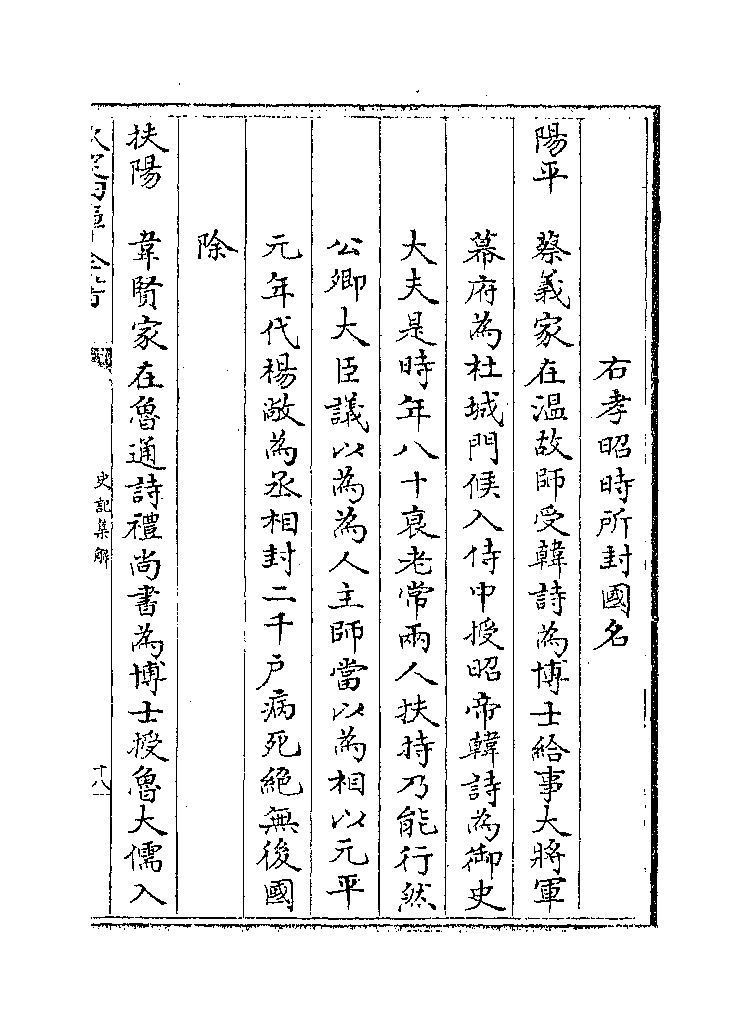 右孝昭時所封國名
陽平　蔡義家在溫故師受韓詩為博士給事大將軍
幕府為杜城門候入侍中授昭帝韓詩為御史
大夫是時年八十衰老常兩人扶持乃能行然
公卿大臣議以為為人主師當以為相以元平
元年代楊敞為丞相封二千戶病死絕無後國
除
扶陽　韋賢家在魯通詩禮尚書為博士授魯大儒入
欽定四庫全書
史記集解
十八